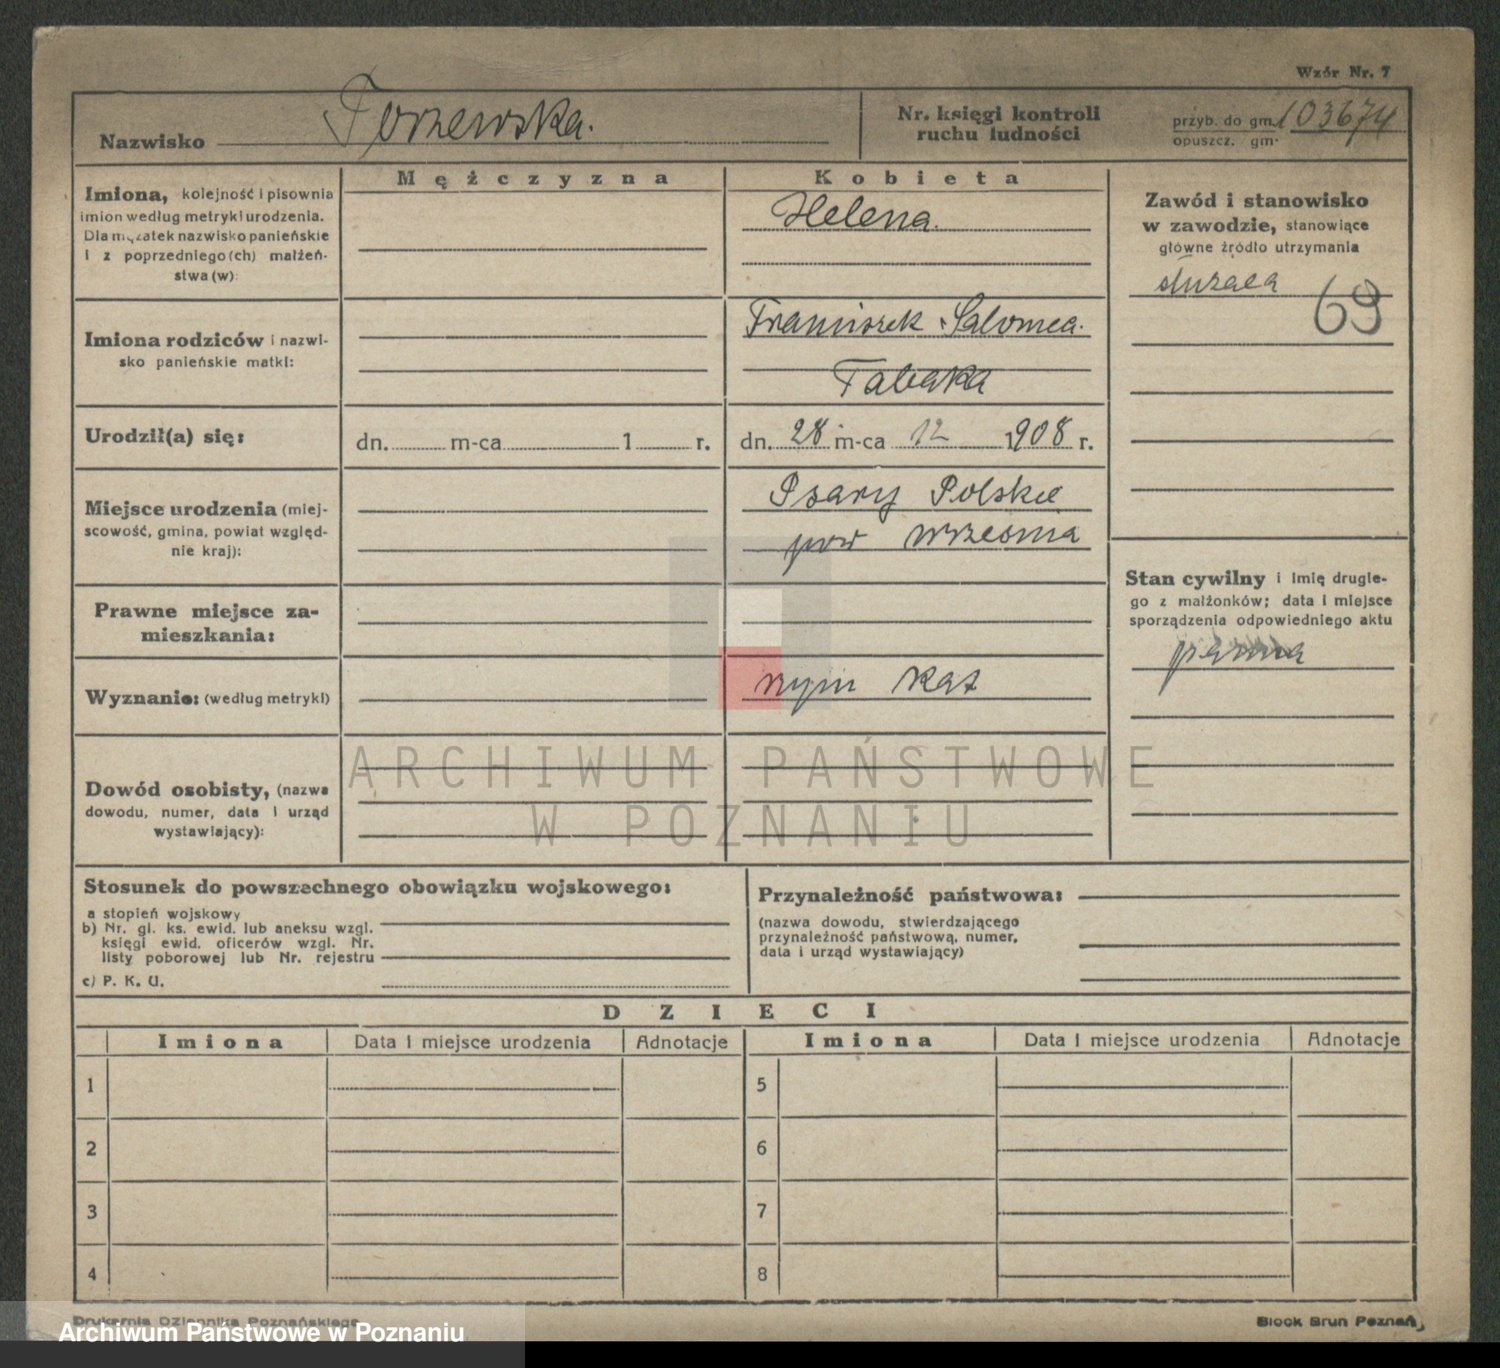 Wzór Nr. 7
Nazwisko Torzewska.
Nr. księgi kontroli
ruchu ludności
przyb. do gm. 103674
opuszcz. gm.
Mężczyzna
Kobieta
Imiona, kolejność i pisownia
imion według metryki urodzenia.
Dla mężatek nazwisko panieńskie
i z poprzedniego(ch) małżeń-
stwa(w):
Helena.
Zawód i stanowisko
w zawodzie, stanowiące
główne źródło utrzymania
służąca
69
Imiona rodziców i nazwi-
sko panieńskie matki:
Franciszek. Salomea.
Tabaka
Urodził(a) się:
dn. m-ca 1 r.
dn. 28 m-ca 12 1908 r.
Miejsce urodzenia (miej-
scowość, gmina, powiat względ-
nie kraj):
Psary Polskie
pow Września
Stan cywilny i imię drugie-
go z małżonków; data i miejsce
sporządzenia odpowiedniego aktu
panna
Prawne miejsce za-
mieszkania:
Wyznanie: (według metryki)
rzym kat
Dowód osobisty, (nazwa
dowodu, numer, data i urząd
wystawiający):
ARCHIWUM PAŃSTWOWE
W POZNANIU
Stosunek do powszechnego obowiązku wojskowego:
a stopień wojskowy
b) Nr. gl. ks. ewid. lub aneksu wzgl.
księgi ewid. oficerów wzgl. Nr.
listy poborowej lub Nr. rejestru
c) P. K. U.
Przynależność państwowa:
(nazwa dowodu, stwierdzającego
przynależność państwową, numer,
data i urząd wystawiający)
DZIECI
Imiona Data i miejsce urodzenia Adnotacje Imiona Data i miejsce urodzenia Adnotacje
1 5
2 6
3 7
4 8
Drukarnia Dziennika Poznańskiego
Block Brun Poznań
Archiwum Państwowe w Poznaniu